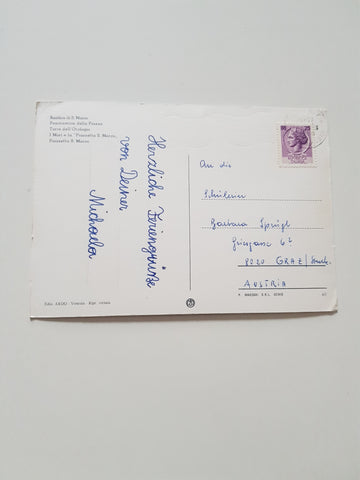 Basilica di S. Marco
Panoramica della Piazza
Torre dell'Orologio
I Mori e la Piazzetta S. Marco
Piazzetta S. Marco
Herzliche Feriengrüße
von Deiner
Michaela
An die
Schülerin
Barbara
6²
8020 GRAZ / Stmk.
AUSTRIA
Ediz. ARDO Venezia Rip. vietata